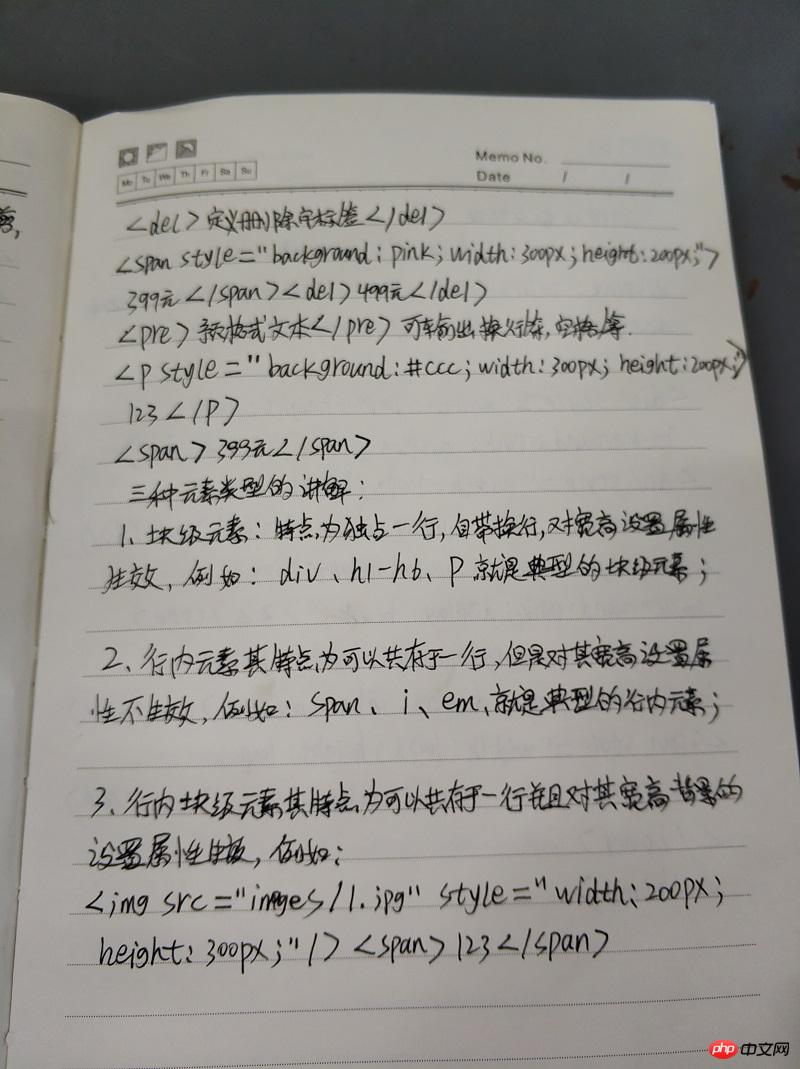 Memo No.
Date / /
Mo Tu We Th Fr Sa Su
<del>定义删除字标签</del>
<span style="background: pink; width: 300px; height: 200px;">
399元</span><del>499元</del>
<pre>预格式文本</pre> 可输出换行符,空格等.
<p style="background:#ccc; width: 300px; height:200px;">
123</p>
<span>399元</span>
三种元素类型的讲解:
1、块级元素:特点为独占一行,自带换行,对宽高设置属性
生效,例如: div、h1-h6、p就是典型的块级元素;
2、行内元素其特点为可以共存于一行,但是对其宽高设置属
性不生效,例如: span、i、em、就是典型的行内元素;
3、行内块级元素其特点为可以共存于一行并且对其宽高背景的
设置属性生效,例如:
<img src="imges/1.jpg" style="width: 200px;
height: 300px;"/> <span>123</span>
php 中文网